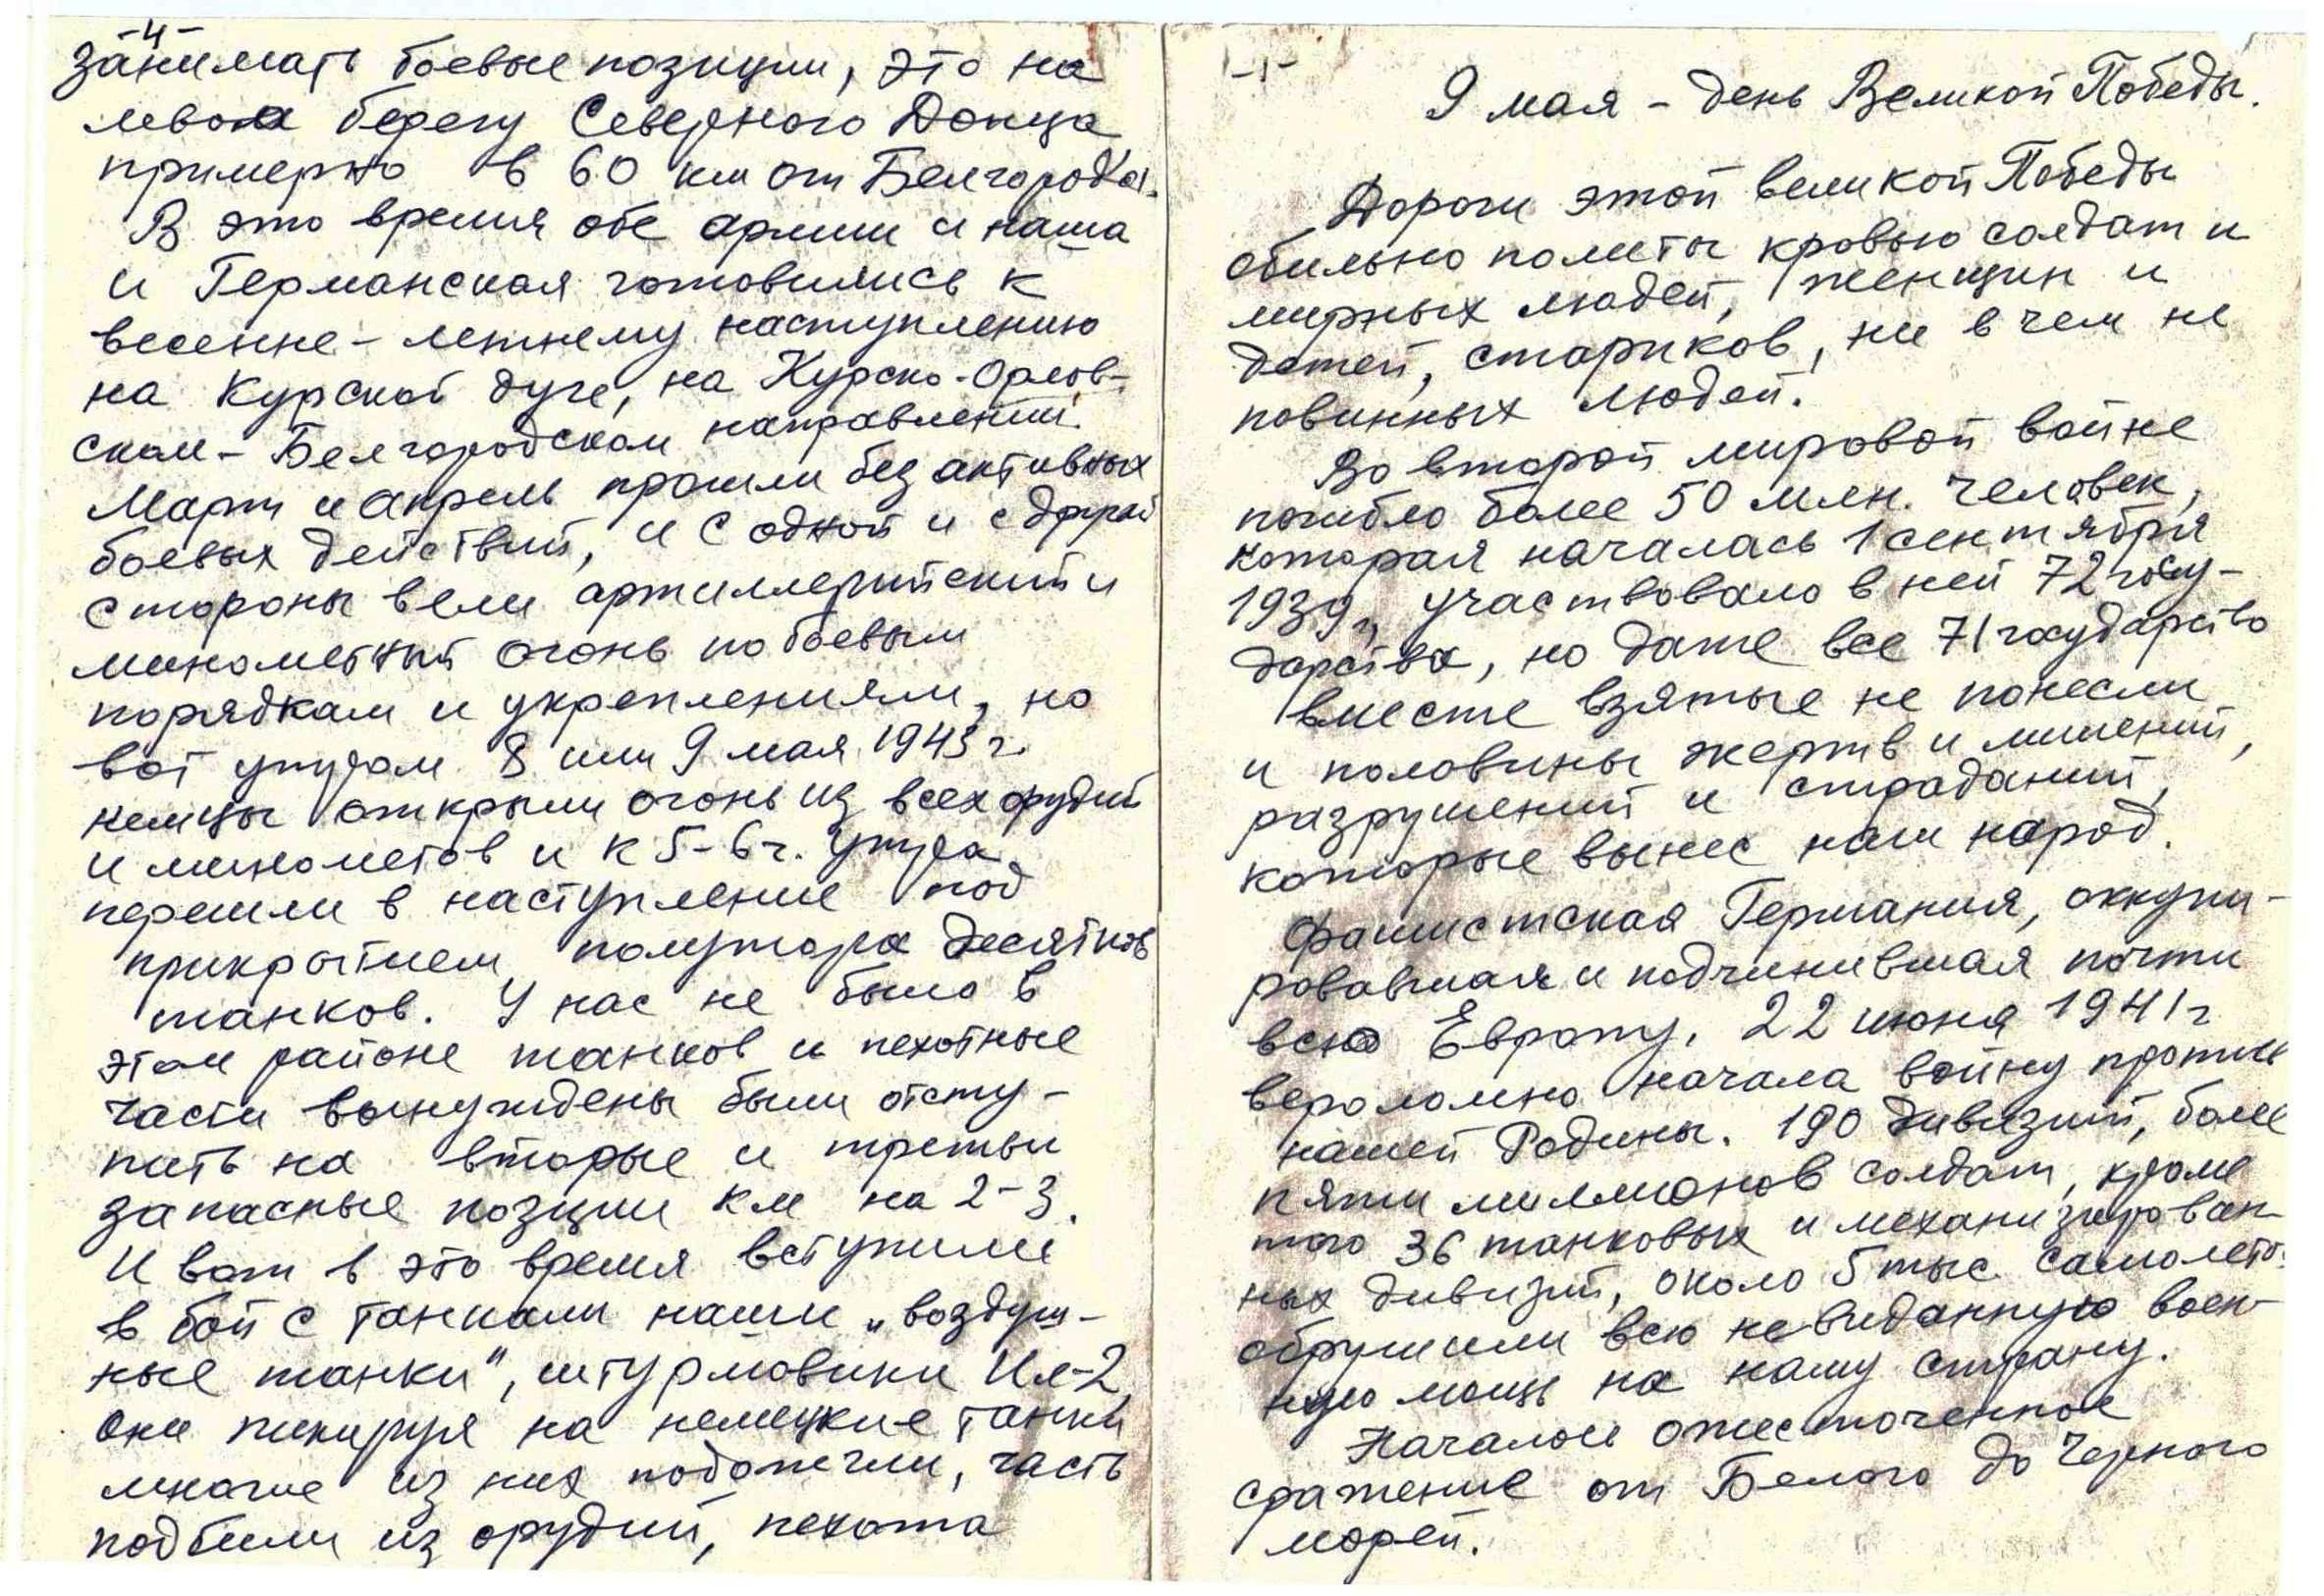 -4-
занимать боевые позиции, это на
левом берегу Северного Донца
примерно в 60 км от Белгорода.
В это время обе армии и наша
и Германская готовились к
весенне-летнему наступлению
на Курской дуге, на Курско-Орлов-
ском-Белгородском направлении.
Март и апрель прошли без активных
боевых действий, и с одной и с другой
стороны вели артиллерийский и
минометный огонь по боевым
порядкам и укреплениям, но
вот утром 8 или 9 мая 1943 г.
немцы открыли огонь из всех орудий
и минометов и к 5-6 ч. утра
перешли в наступление под
прикрытием полутора десятков
танков. У нас не было в
этом районе танков и пехотные
части вынуждены были отсту-
пить на вторые и третьи
запасные позиции км на 2-3.
И вот в это время вступили
в бой с танками наши „воздуш-
ные танки", штурмовики Ил-2,
они пикируя на немецкие танки
многие из них подожгли, часть
подбили из орудий, пехота
-1-
9 мая - день Великой Победы.
Дороги этой великой Победы
обильно политы кровью солдат и
мирных людей, женщин и
детей, стариков, ни в чем не
повинных людей.
Во второй мировой войне
погибло более 50 млн. человек,
которая началась 1 сентября
1939 г, участвовало в ней 72 госу-
дарства, но даже все 71 государство
вместе взятые не понесли
и половины жертв и лишений,
разрушений и страданий,
которые вынес наш народ.
Фашистская Германия, оккупи-
ровавшая и подчинившая почти
всю Европу, 22 июня 1941 г
вероломно начала войну против
нашей Родины. 190 дивизий, более
пяти миллионов солдат, кроме
того 36 танковых и механизирован-
ных дивизий, около 5 тыс. самолето-
обрушили всю невиданную воен-
ную мощь на нашу страну.
Началось ожесточенное
сражение от Белого до Черного
морей.